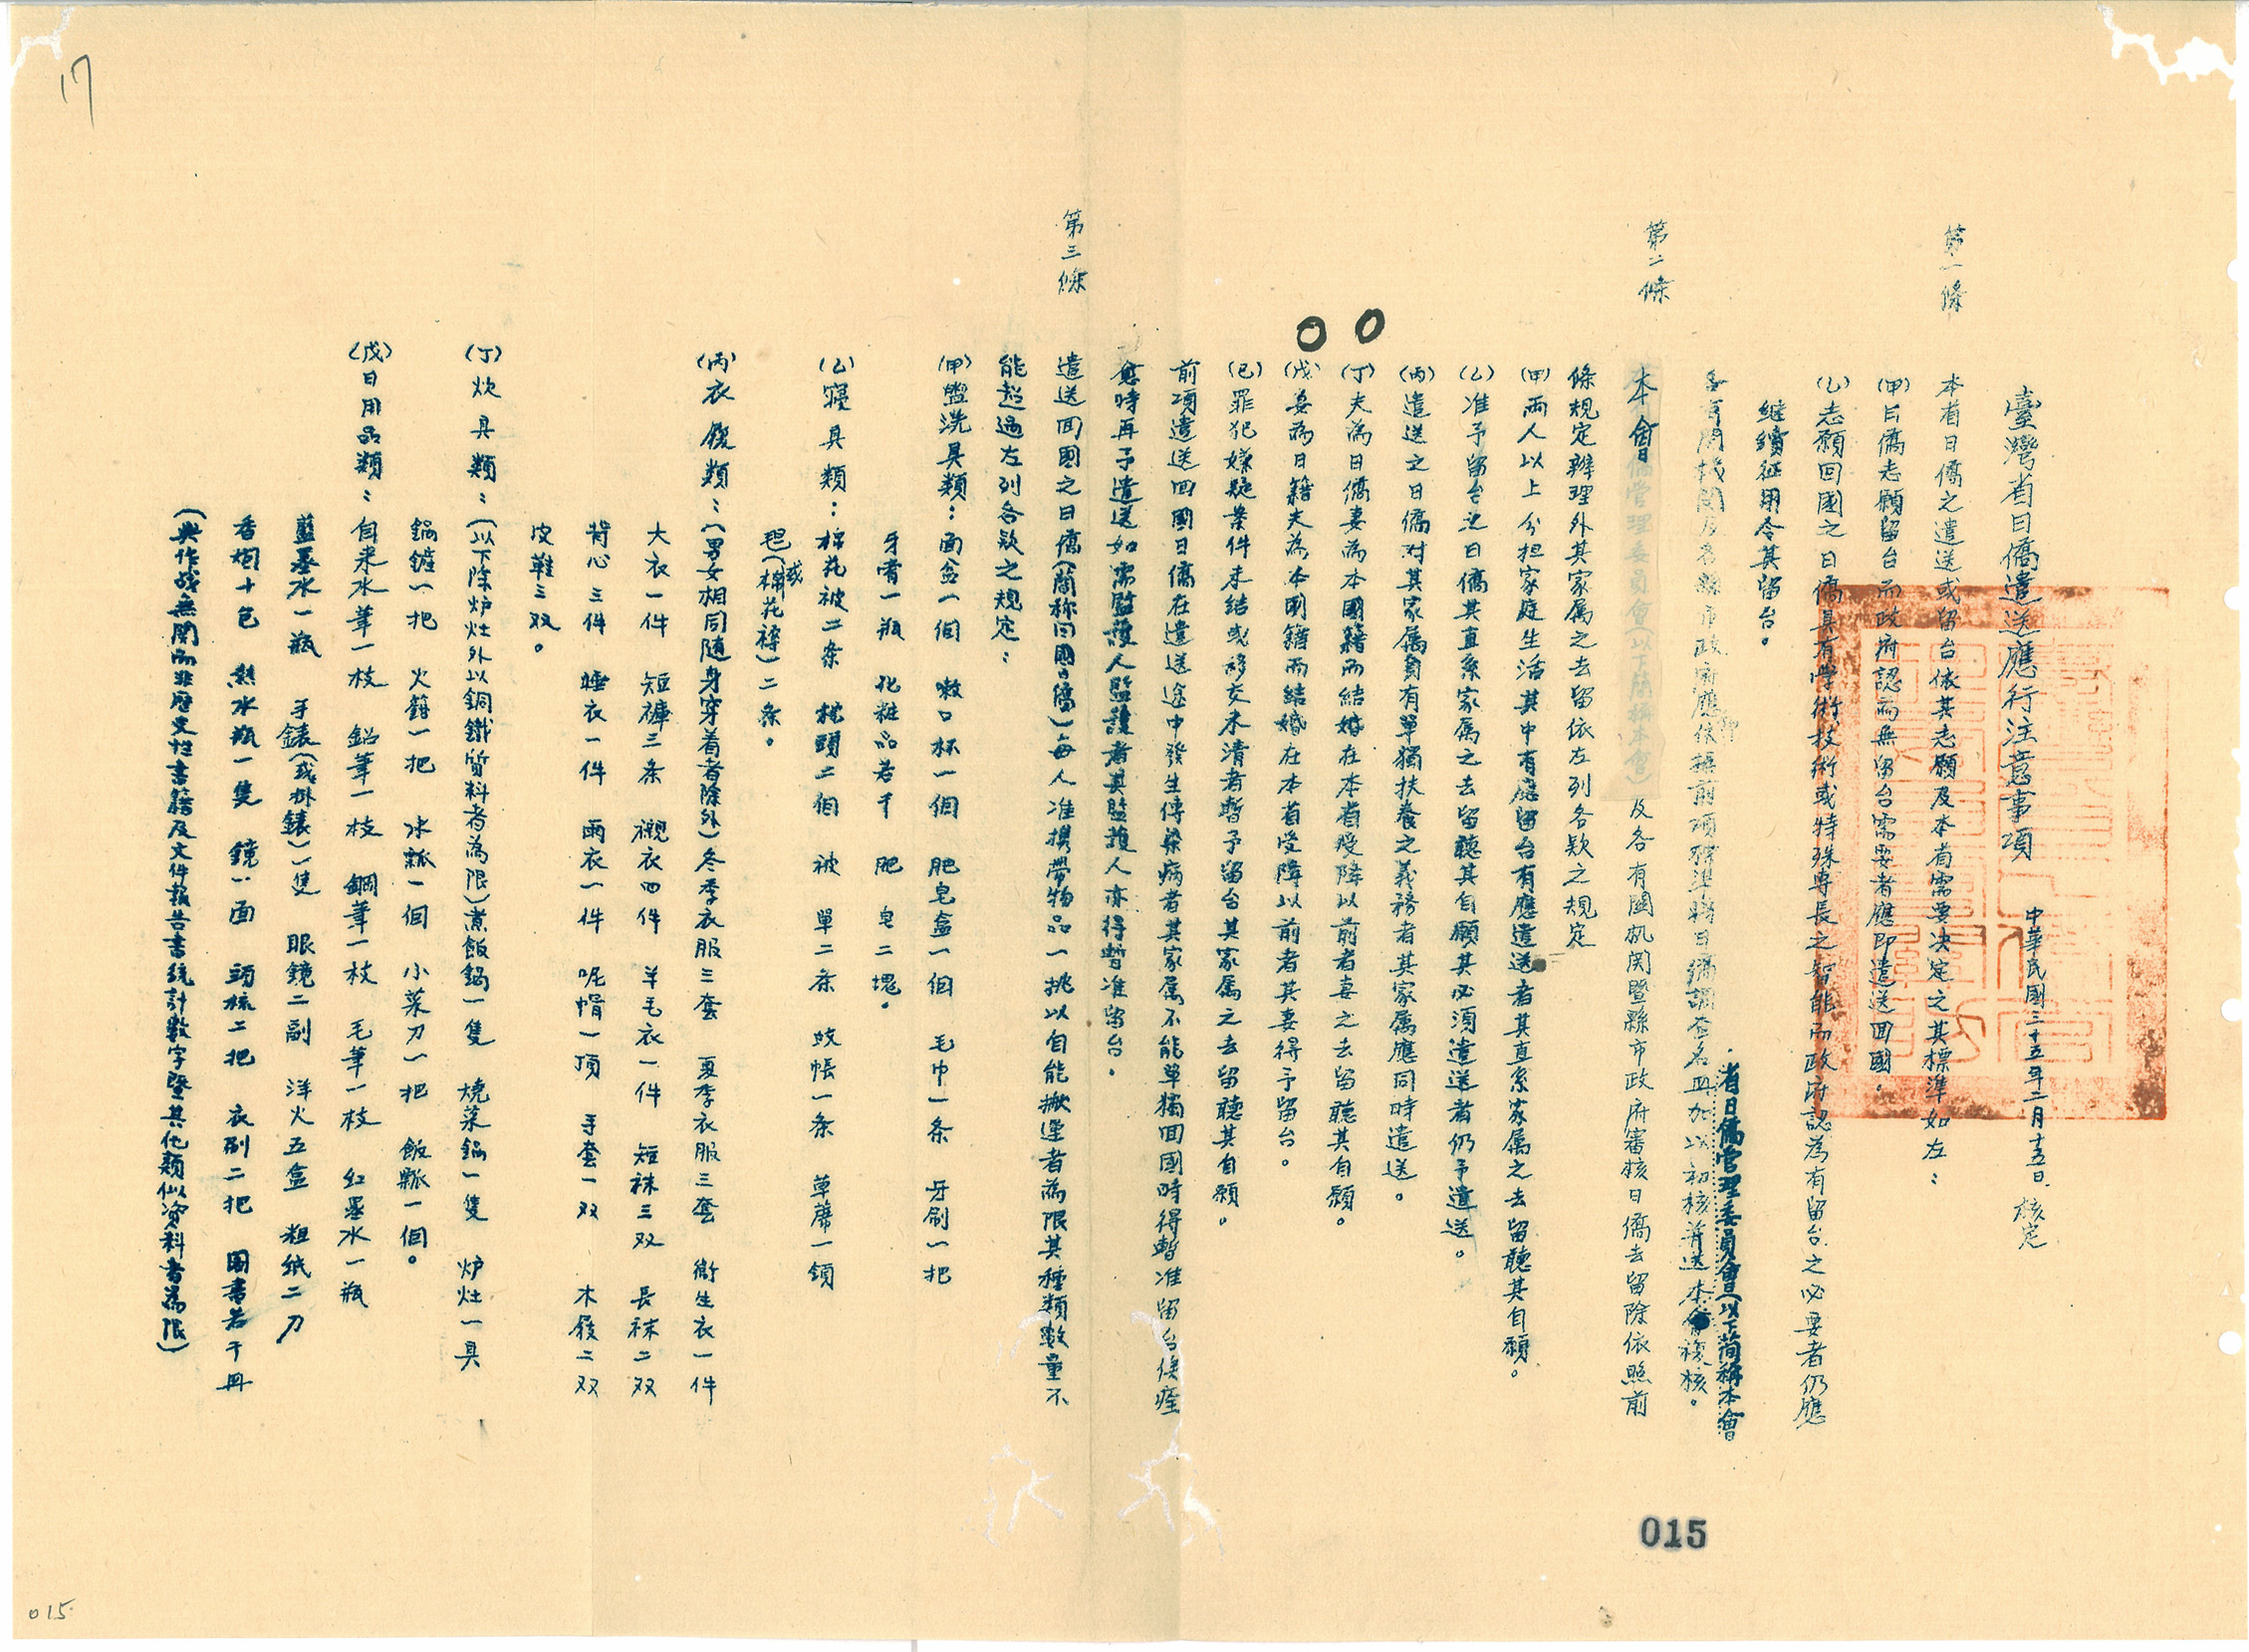 臺灣省日僑遣送應行注意事項 中華民國三十五年二月十五日核定
第一條 本省日僑之遣送或留台依其志願及本省需要决定之其標準如左：
(甲)日僑志願留台而政府認為無留台需要者應即遣送回國。
(乙)志願回國之日僑具有學術技術或特殊專長之智能而政府認為有留台之必要者仍應
継續征用令其留台。
省日僑管理委員會(以下简稱本會
各有關机関及各縣市政府應即依據前項標準將日僑調查名冊加以初核并送本會複核。
第二條 本會及各有關机関暨縣市政府審核日僑去留除依照前
條規定辦理外其家属之去留依左列各款之規定
(甲)兩人以上分担家庭生活其中有應留台有應遣送者其直系家属之去留聽其自願。
(乙)准予留台之日僑其直系家属之去留聽其自願其必須遣送者仍予遣送。
(丙)遣送之日僑对其家属負有單獨扶養之義務者其家属應同時遣送。
(丁)夫為日僑妻為本國籍而結婚在本省受降以前者妻之去留聽其自願。
(戊)妾為日籍夫為本國籍而結婚在本省受降以前者其妻得予留台。
(己)罪犯嫌疑案件未結或移交未清者暫予留台其家属之去留聽其自願。
前項遣送回國日僑在遣送途中發生傳染病者其家属不能單獨回國時得暫准留台俟痊
愈時再予遣送如需監護人監護者其監護人亦得暫准留台.
第三條 遣送回國之日僑(簡称回國日僑)每人准携帶物品一挑以自能搬運者為限其種類數量不
能超過左列各款之規定：
(甲)盥洗具類：面盆一個 嗽口杯一個 肥皂盒一個 毛巾一条 牙刷一把
牙膏一瓶 化粧品若干 肥皂二塊。
(乙)寢具類：棉花被二条 枕頭二個 被單二条 蚊帳一条 草蓆一領
毯(或棉花褥)二条。
(丙)衣履類：(男女相同随身穿着者除外)冬季衣服三套 夏季衣服三套 衛生衣一件
大衣一件 短褲三条 襯衣四件 羊毛衣一件 短袜三双 長袜二双
背心三件 睡衣一件 雨衣一件 呢帽一頂 手套一双 木屐二双
皮鞋三双。
(丁)炊具類：(以下除炉灶外以銅鐵質料者為限)煮飯鍋一隻 燒菜鍋一隻 炉灶一具
鍋鏟一把 火鉗一把 水瓢一個 小菜刀一把 飯瓢一個。
(戊)日用品類：自来水筆一枝 鉛筆一枝 鋼筆一枝 毛筆一枝 红墨水一瓶
藍墨水一瓶 手錶(或掛錶)一隻 眼鏡二副 洋火五盒 粗紙二刀
香烟十包 熱水瓶一隻 鏡一面 頭梳二把 衣刷二把 圖書若干冊
(與作战無関而非歷史性書籍及文件報告書統計數字暨其他類似資料者為限)
17
015
015